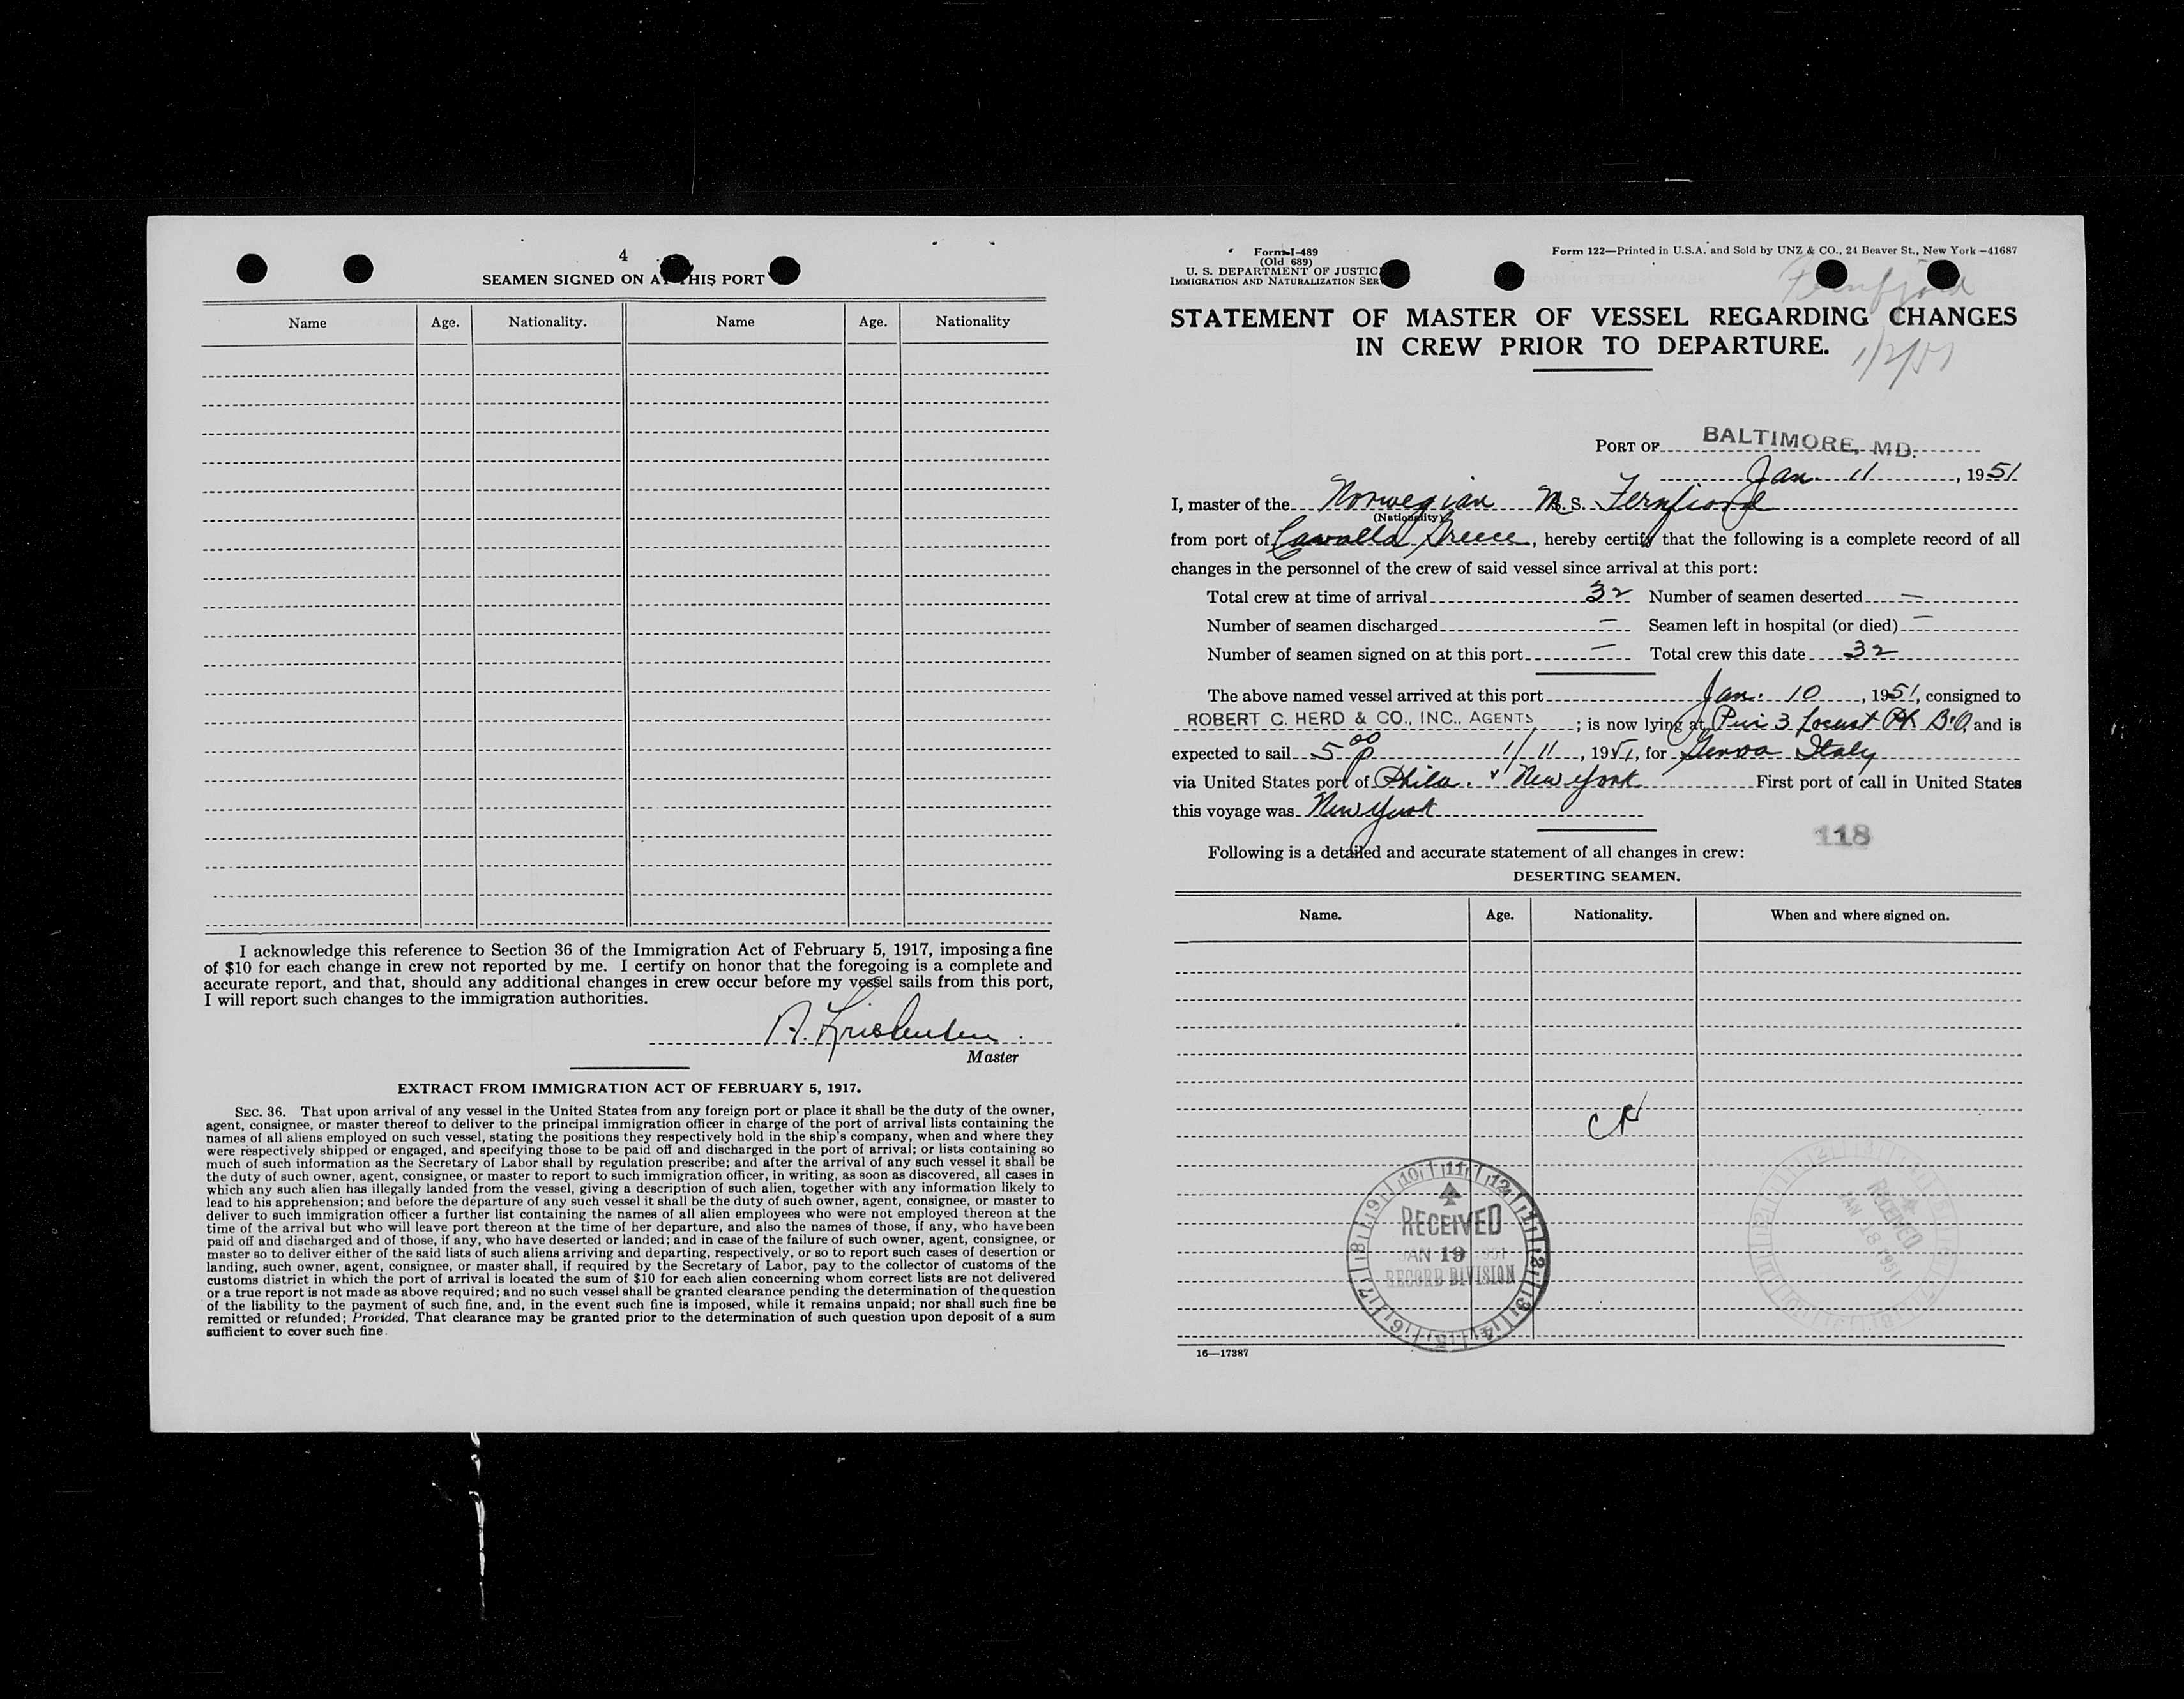 4
SEAMEN SIGNED ON AT THIS PORT
Name Age. Nationality. Name Age. Nationality
I acknowledge this reference to Section 36 of the Immigration Act of February 5, 1917, imposing a fine
of $10 for each change in crew not reported by me. I certify on honor that the foregoing is a complete and
accurate report, and that, should any additional changes in crew occur before my vessel sails from this port,
I will report such changes to the immigration authorities.
Master
EXTRACT FROM IMMIGRATION ACT OF FEBRUARY 5, 1917.
SEC. 36. That upon arrival of any vessel in the United States from any foreign port or place it shall be the duty of the owner,
agent, consignee, or master thereof to deliver to the principal immigration officer in charge of the port of arrival lists containing the
names of all aliens employed on such vessel, stating the positions they respectively hold in the ship's company, when and where they
were respectively shipped or engaged, and specifying those to be paid off and discharged in the port of arrival; or lists containing so
much of such information as the Secretary of Labor shall by regulation prescribe; and after the arrival of any such vessel it shall be
the duty of such owner, agent, consignee, or master to report to such immigration officer, in writing, as soon as discovered, all cases in
which any such alien has illegally landed from the vessel, giving a description of such alien, together with any information likely to
lead to his apprehension; and before the departure of any such vessel it shall be the duty of such owner, agent, consignee, or master to
deliver to such immigration officer a further list containing the names of all alien employees who were not employed thereon at the
time of the arrival but who will leave port thereon at the time of her departure, and also the names of those, if any, who have been
paid off and discharged and of those, if any, who have deserted or landed; and in case of the failure of such owner, agent, consignee, or
master so to deliver either of the said lists of such aliens arriving and departing, respectively, or so to report such cases of desertion or
landing, such owner, agent, consignee, or master shall, if required by the Secretary of Labor, pay to the collector of customs of the
customs district in which the port of arrival is located the sum of $10 for each alien concerning whom correct lists are not delivered
or a true report is not made as above required; and no such vessel shall be granted clearance pending the determination of the question
of the liability to the payment of such fine, and, in the event such fine is imposed, while it remains unpaid; nor shall such fine be
remitted or refunded; Provided, That clearance may be granted prior to the determination of such question upon deposit of a sum
sufficient to cover such fine.
Form I-489
(Old 689)
U. S. DEPARTMENT OF JUSTIC
IMMIGRATION AND NATURALIZATION SER
Form 122—Printed in U.S.A. and Sold by UNZ & CO., 24 Beaver St., New York—41687
Fernfjord
STATEMENT OF MASTER OF VESSEL REGARDING CHANGES
IN CREW PRIOR TO DEPARTURE.
PORT OF BALTIMORE, MD.
Jan. 11, 1951
I, master of the Norwegian M.S. Fernfiord
(Nationality)
from port of Cavalla Greece, hereby certify that the following is a complete record of all
changes in the personnel of the crew of said vessel since arrival at this port:
Total crew at time of arrival 32 Number of seamen deserted —
Number of seamen discharged — Seamen left in hospital (or died) —
Number of seamen signed on at this port — Total crew this date 32
The above named vessel arrived at this port Jan. 10, 1951, consigned to
ROBERT C. HERD & CO., INC., AGENTS; is now lying at Pier 3 Locust Pt B&O and is
expected to sail 5 00 P 1/11, 1951, for Genoa Italy
via United States port of Phila. & New York First port of call in United States
this voyage was New York
118
Following is a detailed and accurate statement of all changes in crew:
DESERTING SEAMEN.
Name. Age. Nationality. When and where signed on.
RECEIVED
JAN 19 1951
RECORD DIVISION
RECEIVED
JAN 18 1951
16—17387